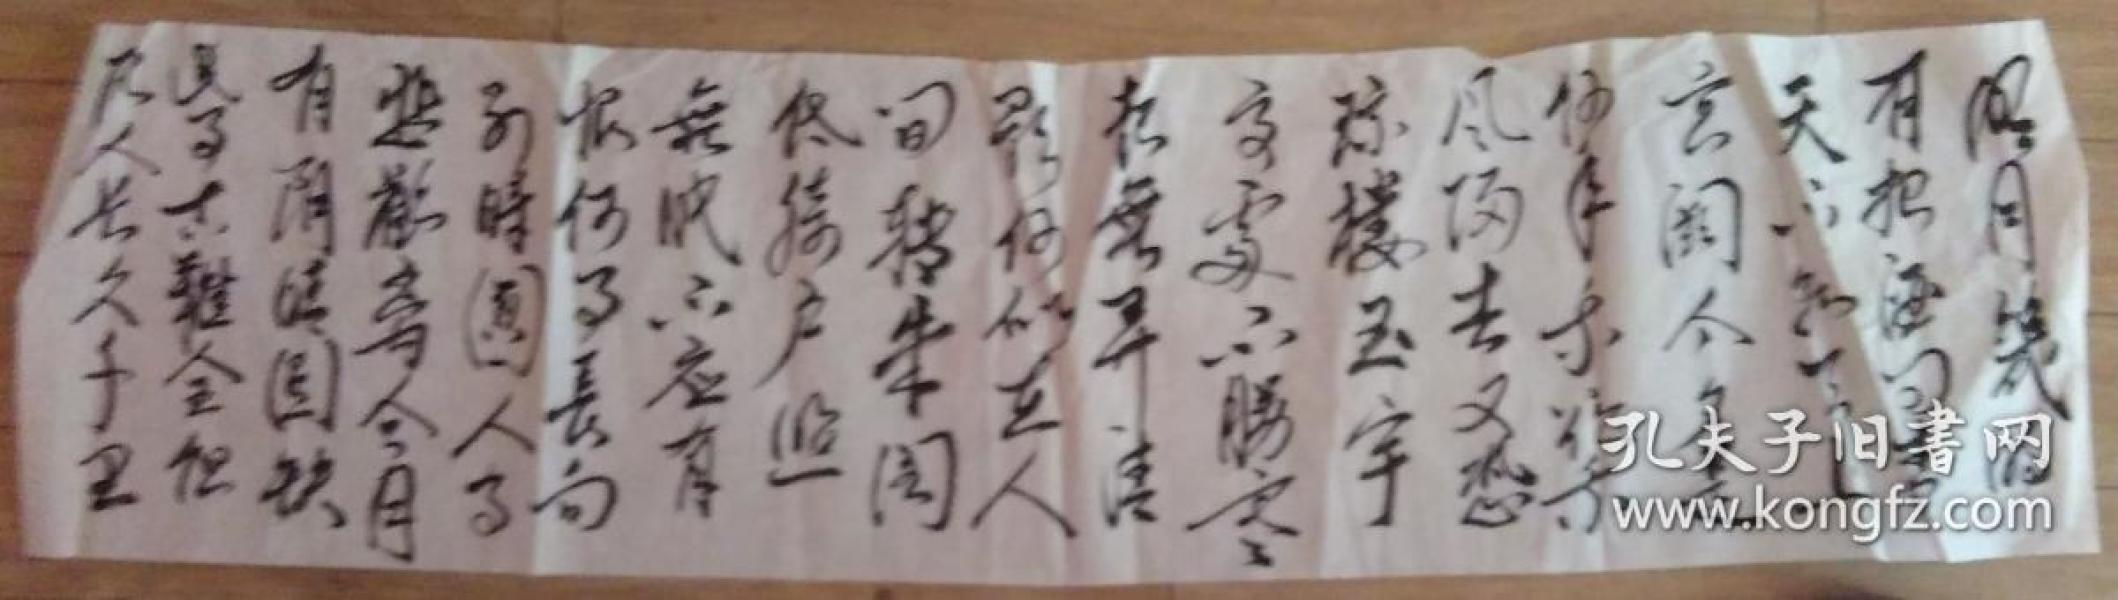 明月幾时
有把酒问青
天不知天上
宫阙今夕是
何年
风归去又恐
琼樓玉宇
高處不勝寒
起舞弄清
影何似在人
间轉朱阁
低绮户照
無眠不应有
恨何事長向
别時圓人有
悲歡离合月
有阴晴圆缺
此事古難全但
人长久千里
孔夫子旧書网
www.kongfz.com